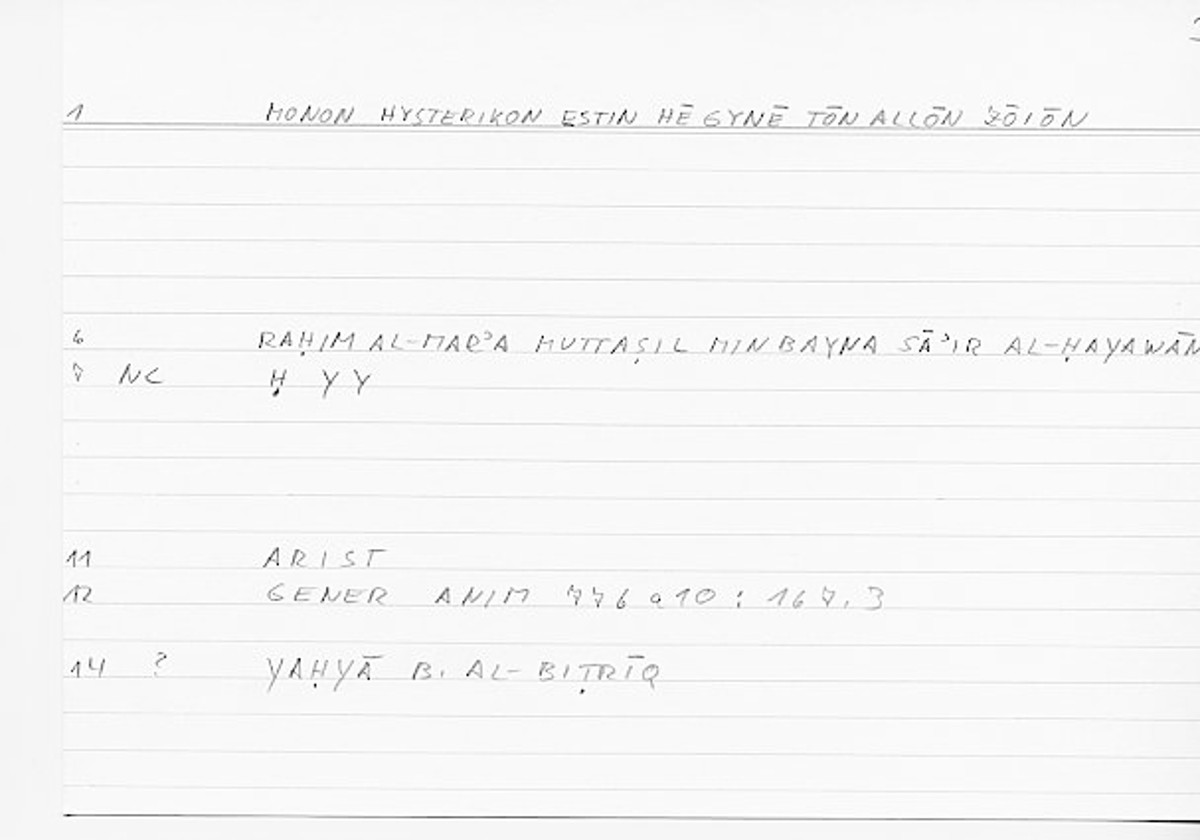 1 MONON HYSTERIKON ESTIN HĒ GYNĒ TŌN ALLŌN ZŌIŌN
6 RAḤIM AL-MARʾA MUTTAṢIL MIN BAYNA SĀʾIR AL-ḤAYAWĀN
7 NC Ḥ Y Y
11 ARIST
12 GENER ANIM 776 a 10 : 167.3
14 ? YAḤYĀ B. AL-BIṬRĪQ